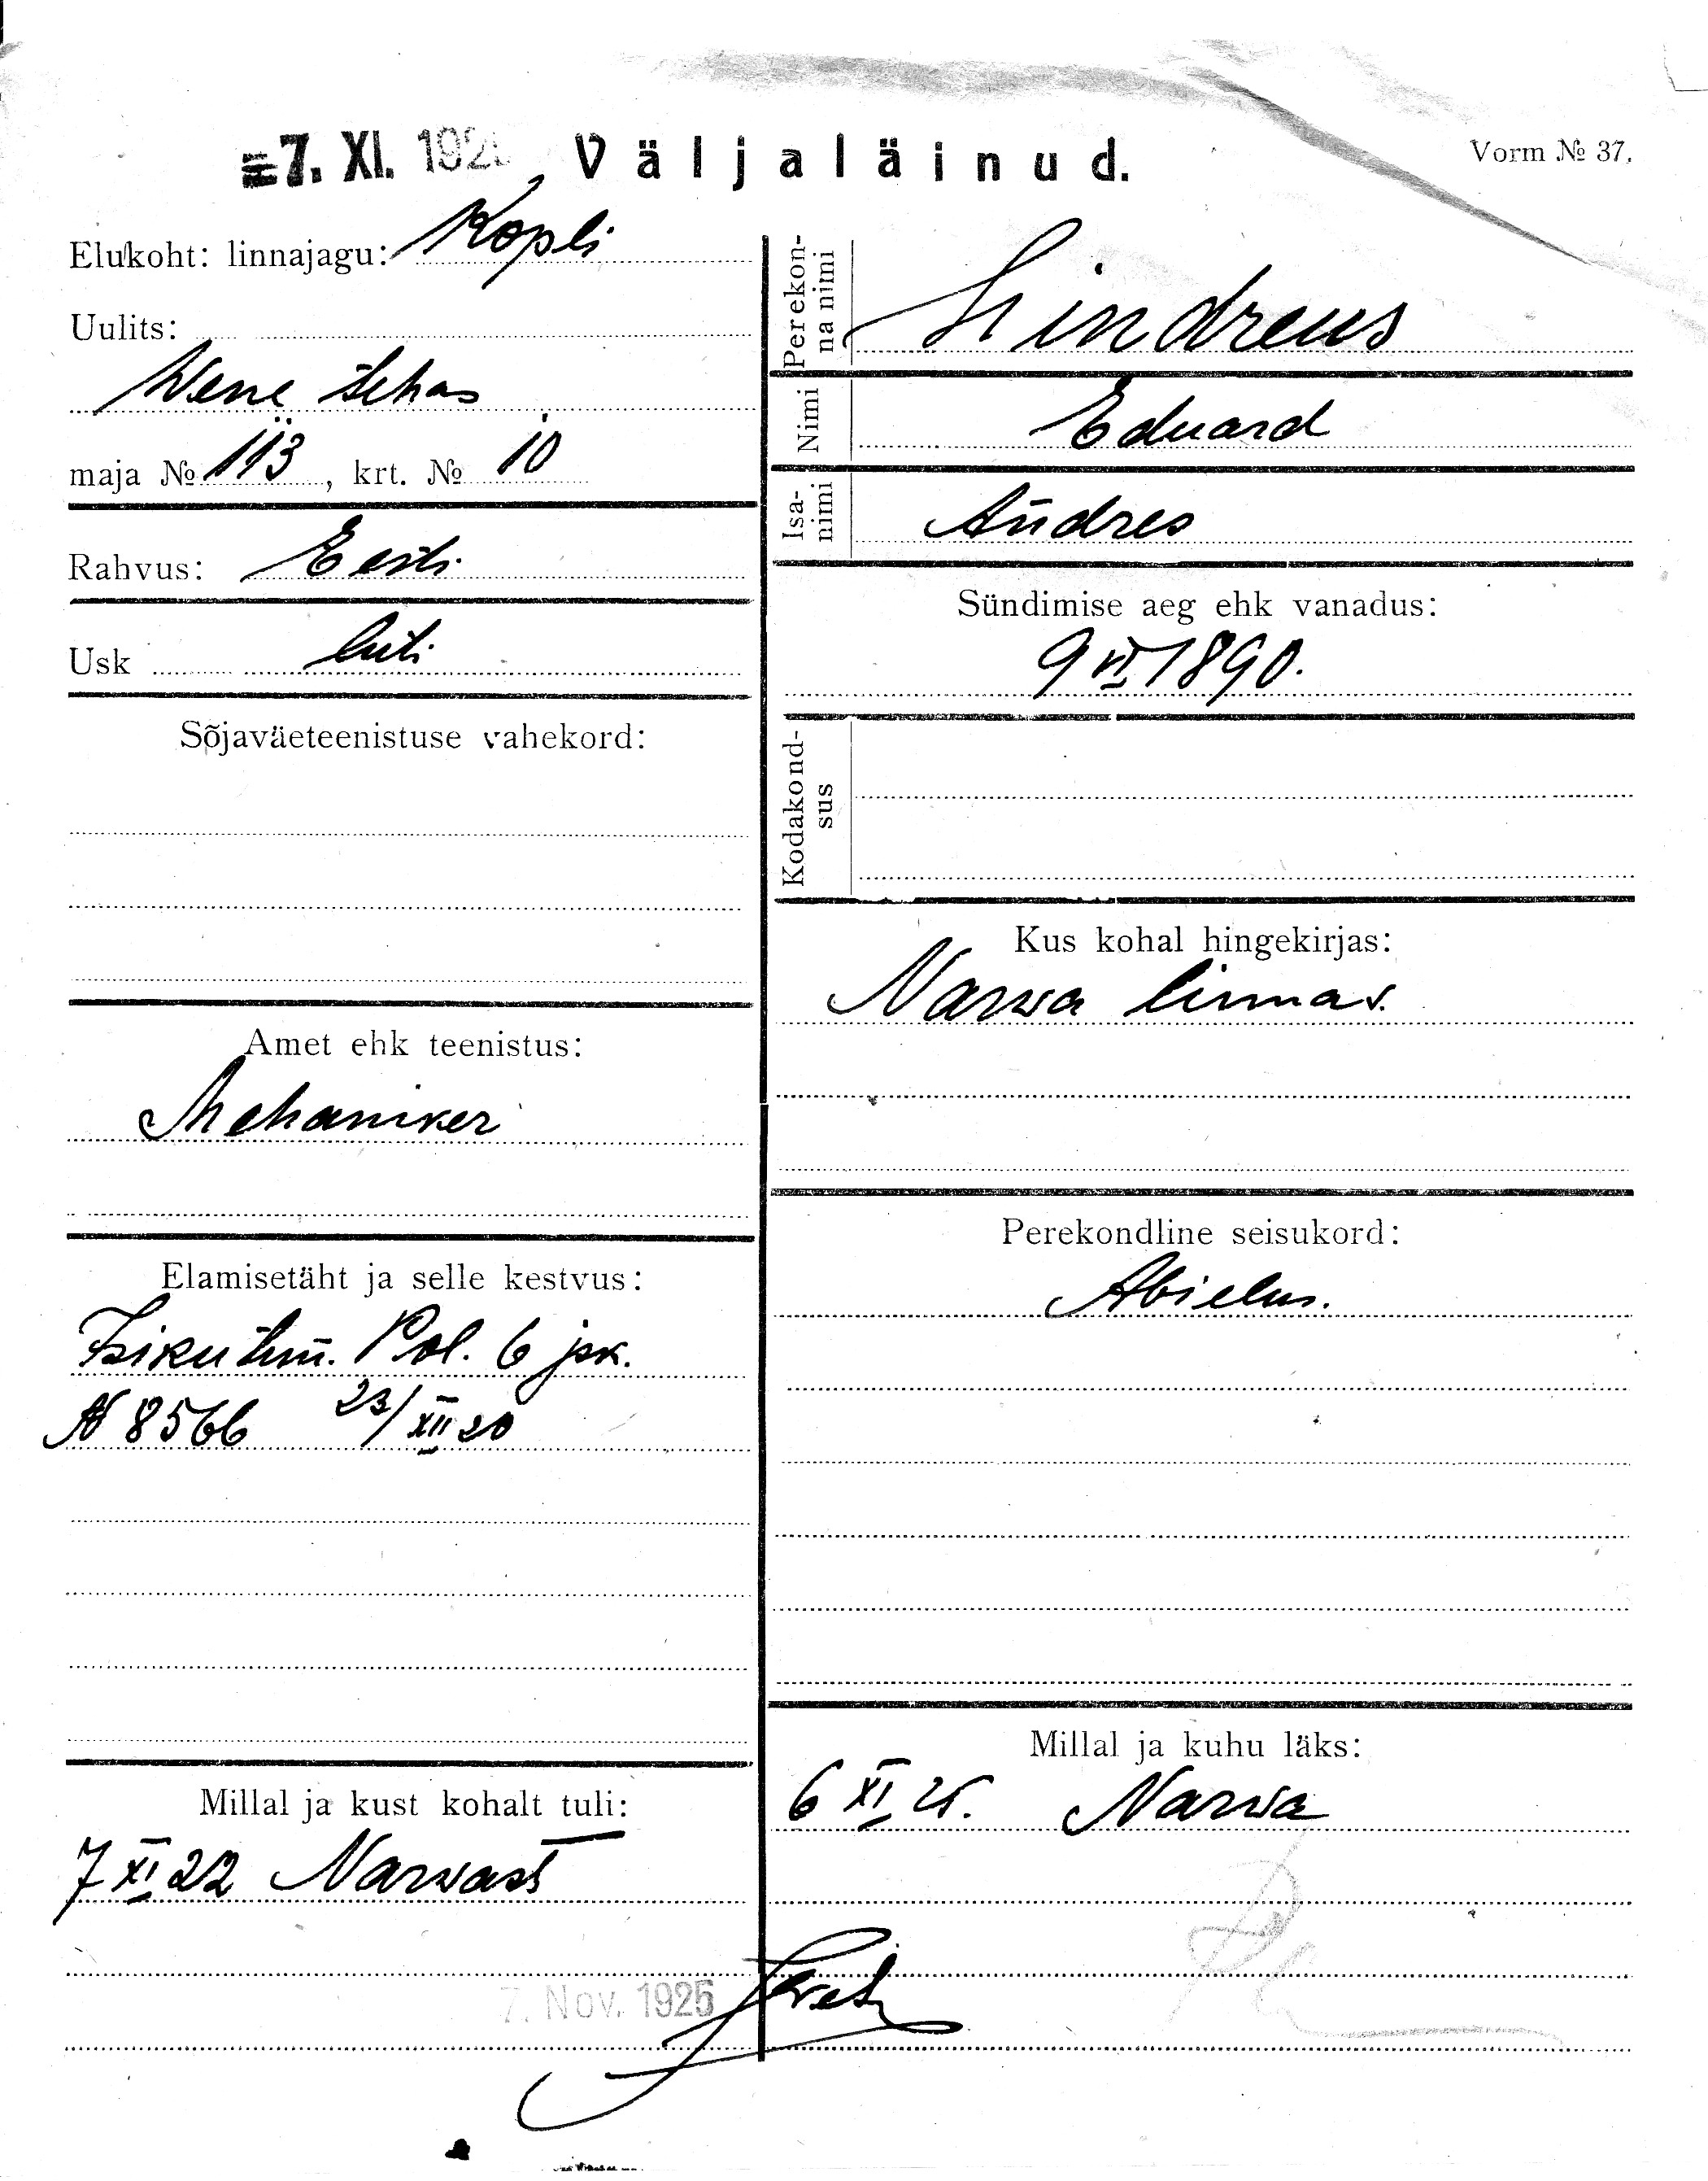 =7. XI. 192
Väljaläinud.
Vorm № 37.
Elukoht: linnajagu: Kopli
Uulits:
Wene tehas
maja № 113, krt. № 10
Rahvus: Eesti
Usk luti
Sõjaväeteenistuse vahekord:
Amet ehk teenistus:
Mehaniker
Elamisetäht ja selle kestvus:
Isikutun. Pol. 6 jsk.
N 8566 23/XII 20
Millal ja kust kohalt tuli:
7 XI 22 Narvast
7. Nov. 1925
Perekon-
na nimi
Lindreus
Nimi
Eduard
Isa-
nimi
Andres
Sündimise aeg ehk vanadus:
9 VI 1890.
Kodakond-
sus
Kus kohal hingekirjas:
Narwa linnas.
Perekondline seisukord:
Abielus.
Millal ja kuhu läks:
6 XI 25. Narva